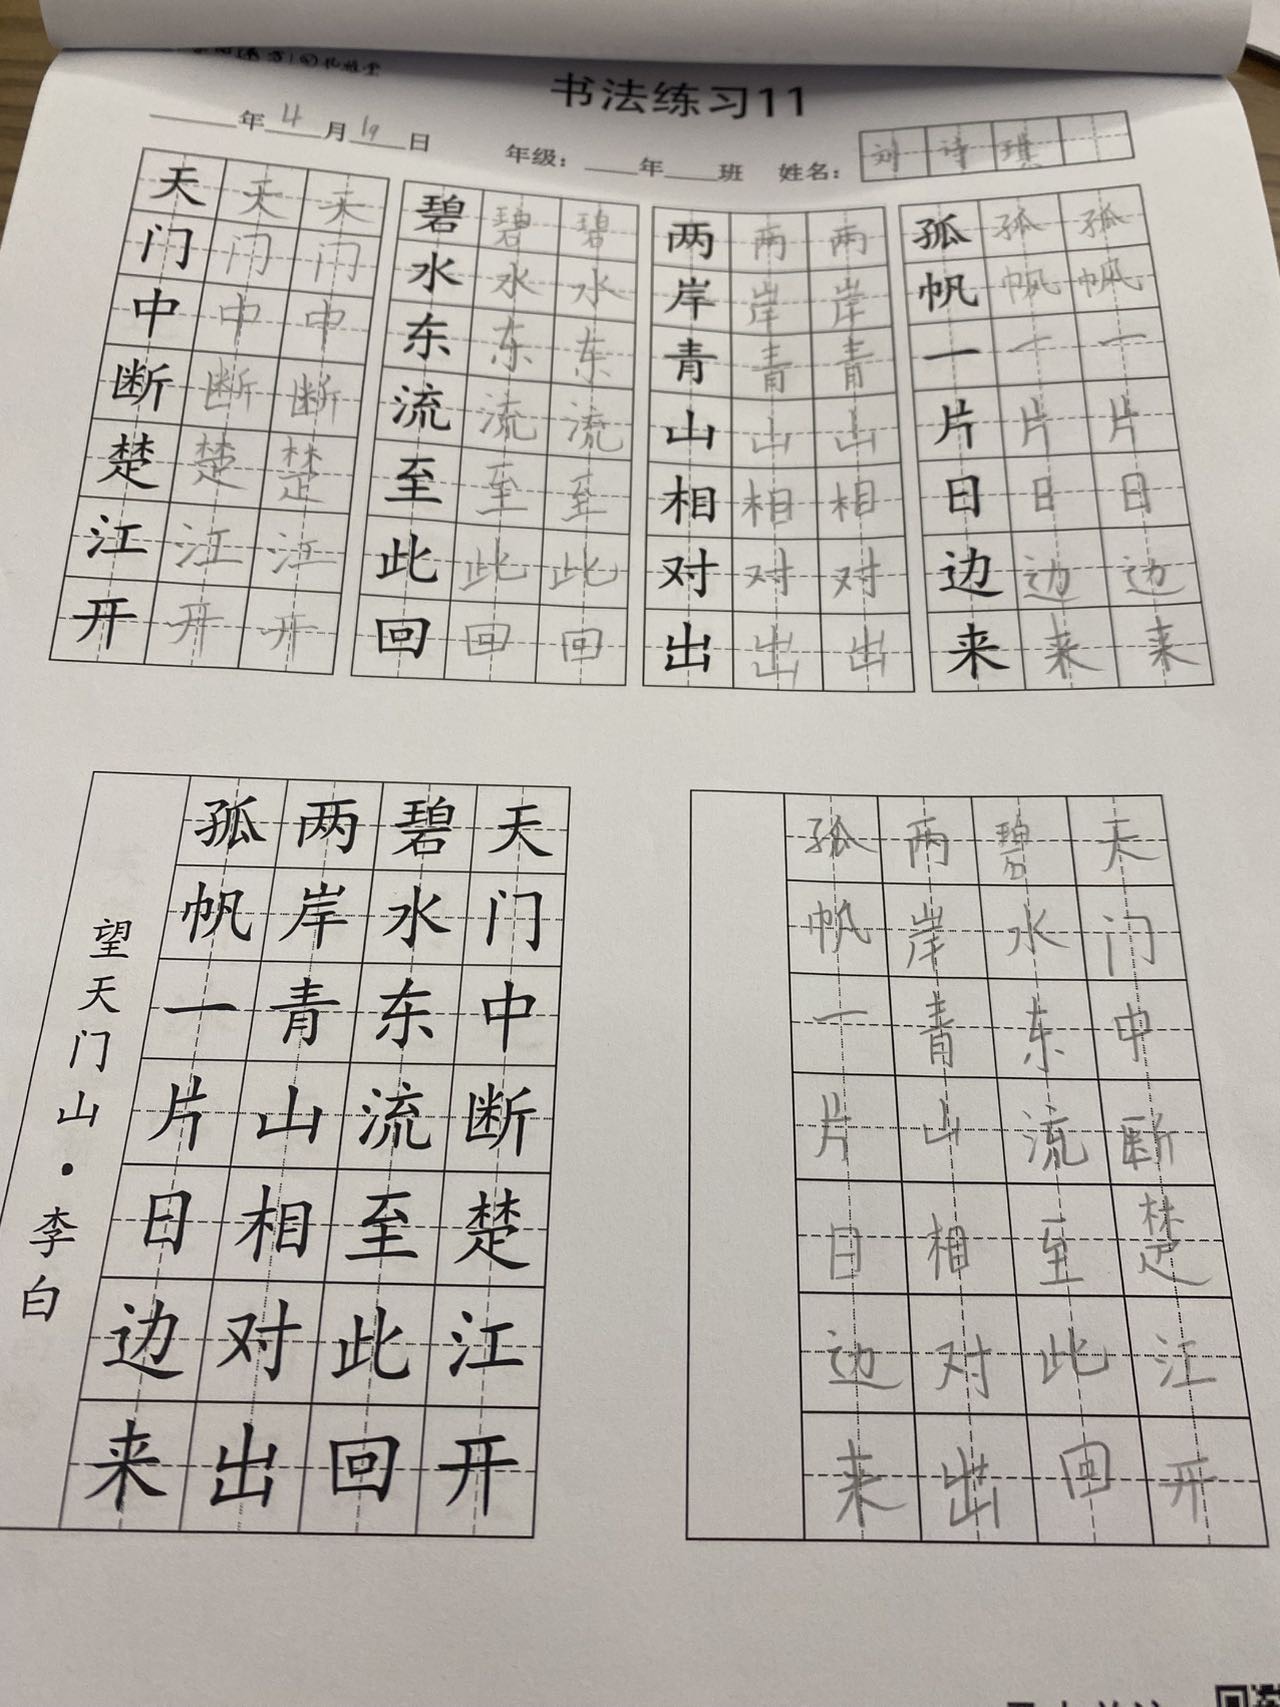 书法练习11
年 4 月 19 日 年级： 年 班 姓名： 刘 诗 琪
天 天 天 碧 碧 碧 两 两 两 孤 孤 孤
门 门 门 水 水 水 岸 岸 岸 帆 帆 帆
中 中 中 东 东 东 青 青 青 一 一 一
断 断 断 流 流 流 山 山 山 片 片 片
楚 楚 楚 至 至 至 相 相 相 日 日 日
江 江 江 此 此 此 对 对 对 边 边 边
开 开 开 回 回 回 出 出 出 来 来 来
天门中断楚江开
碧水东流至此回
两岸青山相对出
孤帆一片日边来
望天门山·李白
天门中断楚江开
碧水东流至此回
两岸青山相对出
孤帆一片日边来